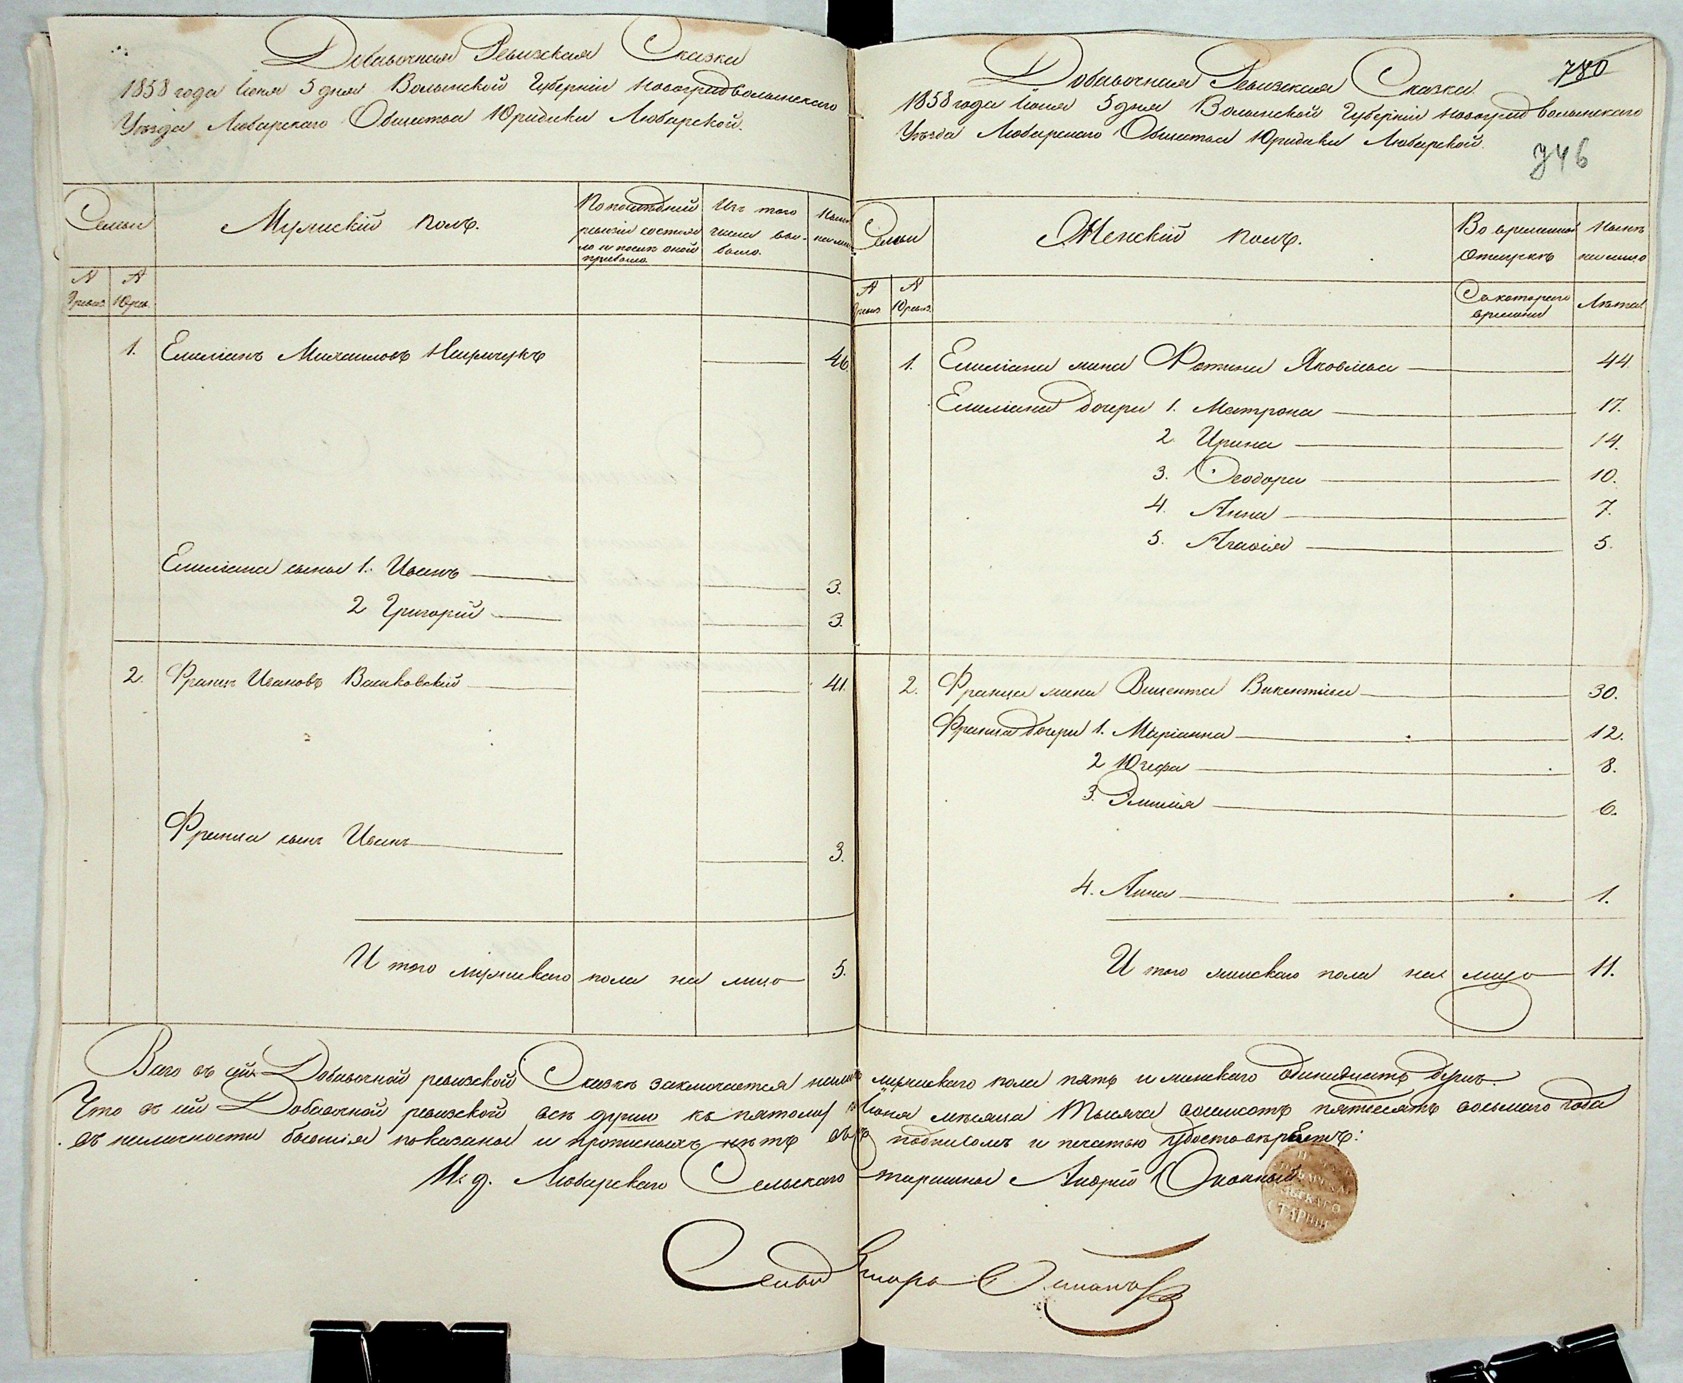 Добавочная Ревизская Сказка
1858 года Іюня 5 дня Волынской Губерніи Новоградволынскаго
Уѣзда Любарскаго Общества Юридики Любарской.
Семьи
Мужескій полъ.
По послѣдней
ревизіи состоя
ло и послѣ оной
прибыло
Изъ того
числа вы-
было.
Нынѣ
на лицо
№
Ревиз.
№
Юрид.
1. Емиліанъ Михаиловъ 46
Емиліана сыны 1. Иванъ 3.
2 Григорій 3.
2. Францъ Ивановъ Васьковскій 41.
Франца сынъ Иванъ 3.
И того мужескаго пола на лицо 5.
780
Добавочная Ревизская Сказка
1858 года Іюня 5 дня Волынской Губерніи Новоградволынскаго
Уѣзда Любарскаго Общества Юридики Любарской.
746
Семьи
Женскій полъ.
Во временной
отлучкѣ
Нынѣ
на лицо
№
Ревиз.
№
Юридик.
Съ котораго
времени
Лѣта
1. Емиліана жена Фотина Яковлева 44.
Емиліана дочери 1. Матрона 17.
2 Ирина 14.
3. Ѳеодора 10.
4. Анна 7.
5. Агафія 5.
2. Франца жена Винента Викентіева 30.
Франца дочери 1. Маріанна 12.
2 Юзефа 8.
3. Эмилія 6.
4. Анна 1.
И того женскаго пола на лицо 11.
Всего въ сей Добавочной ревизской Сказкѣ заключается мужескаго пола пять и женскаго одинадцать душъ.
Что въ сей Добавочной ревизской всѣ души къ пятому Іюня мѣсяца Тысяча восемсотъ пятдесятъ восьмаго года
въ наличности бывшія показаны и прописныхъ нѣтъ въ подписомъ и печатью удостовѣряетъ:
И. д. Любарскаго Сельскаго старшины Андрій